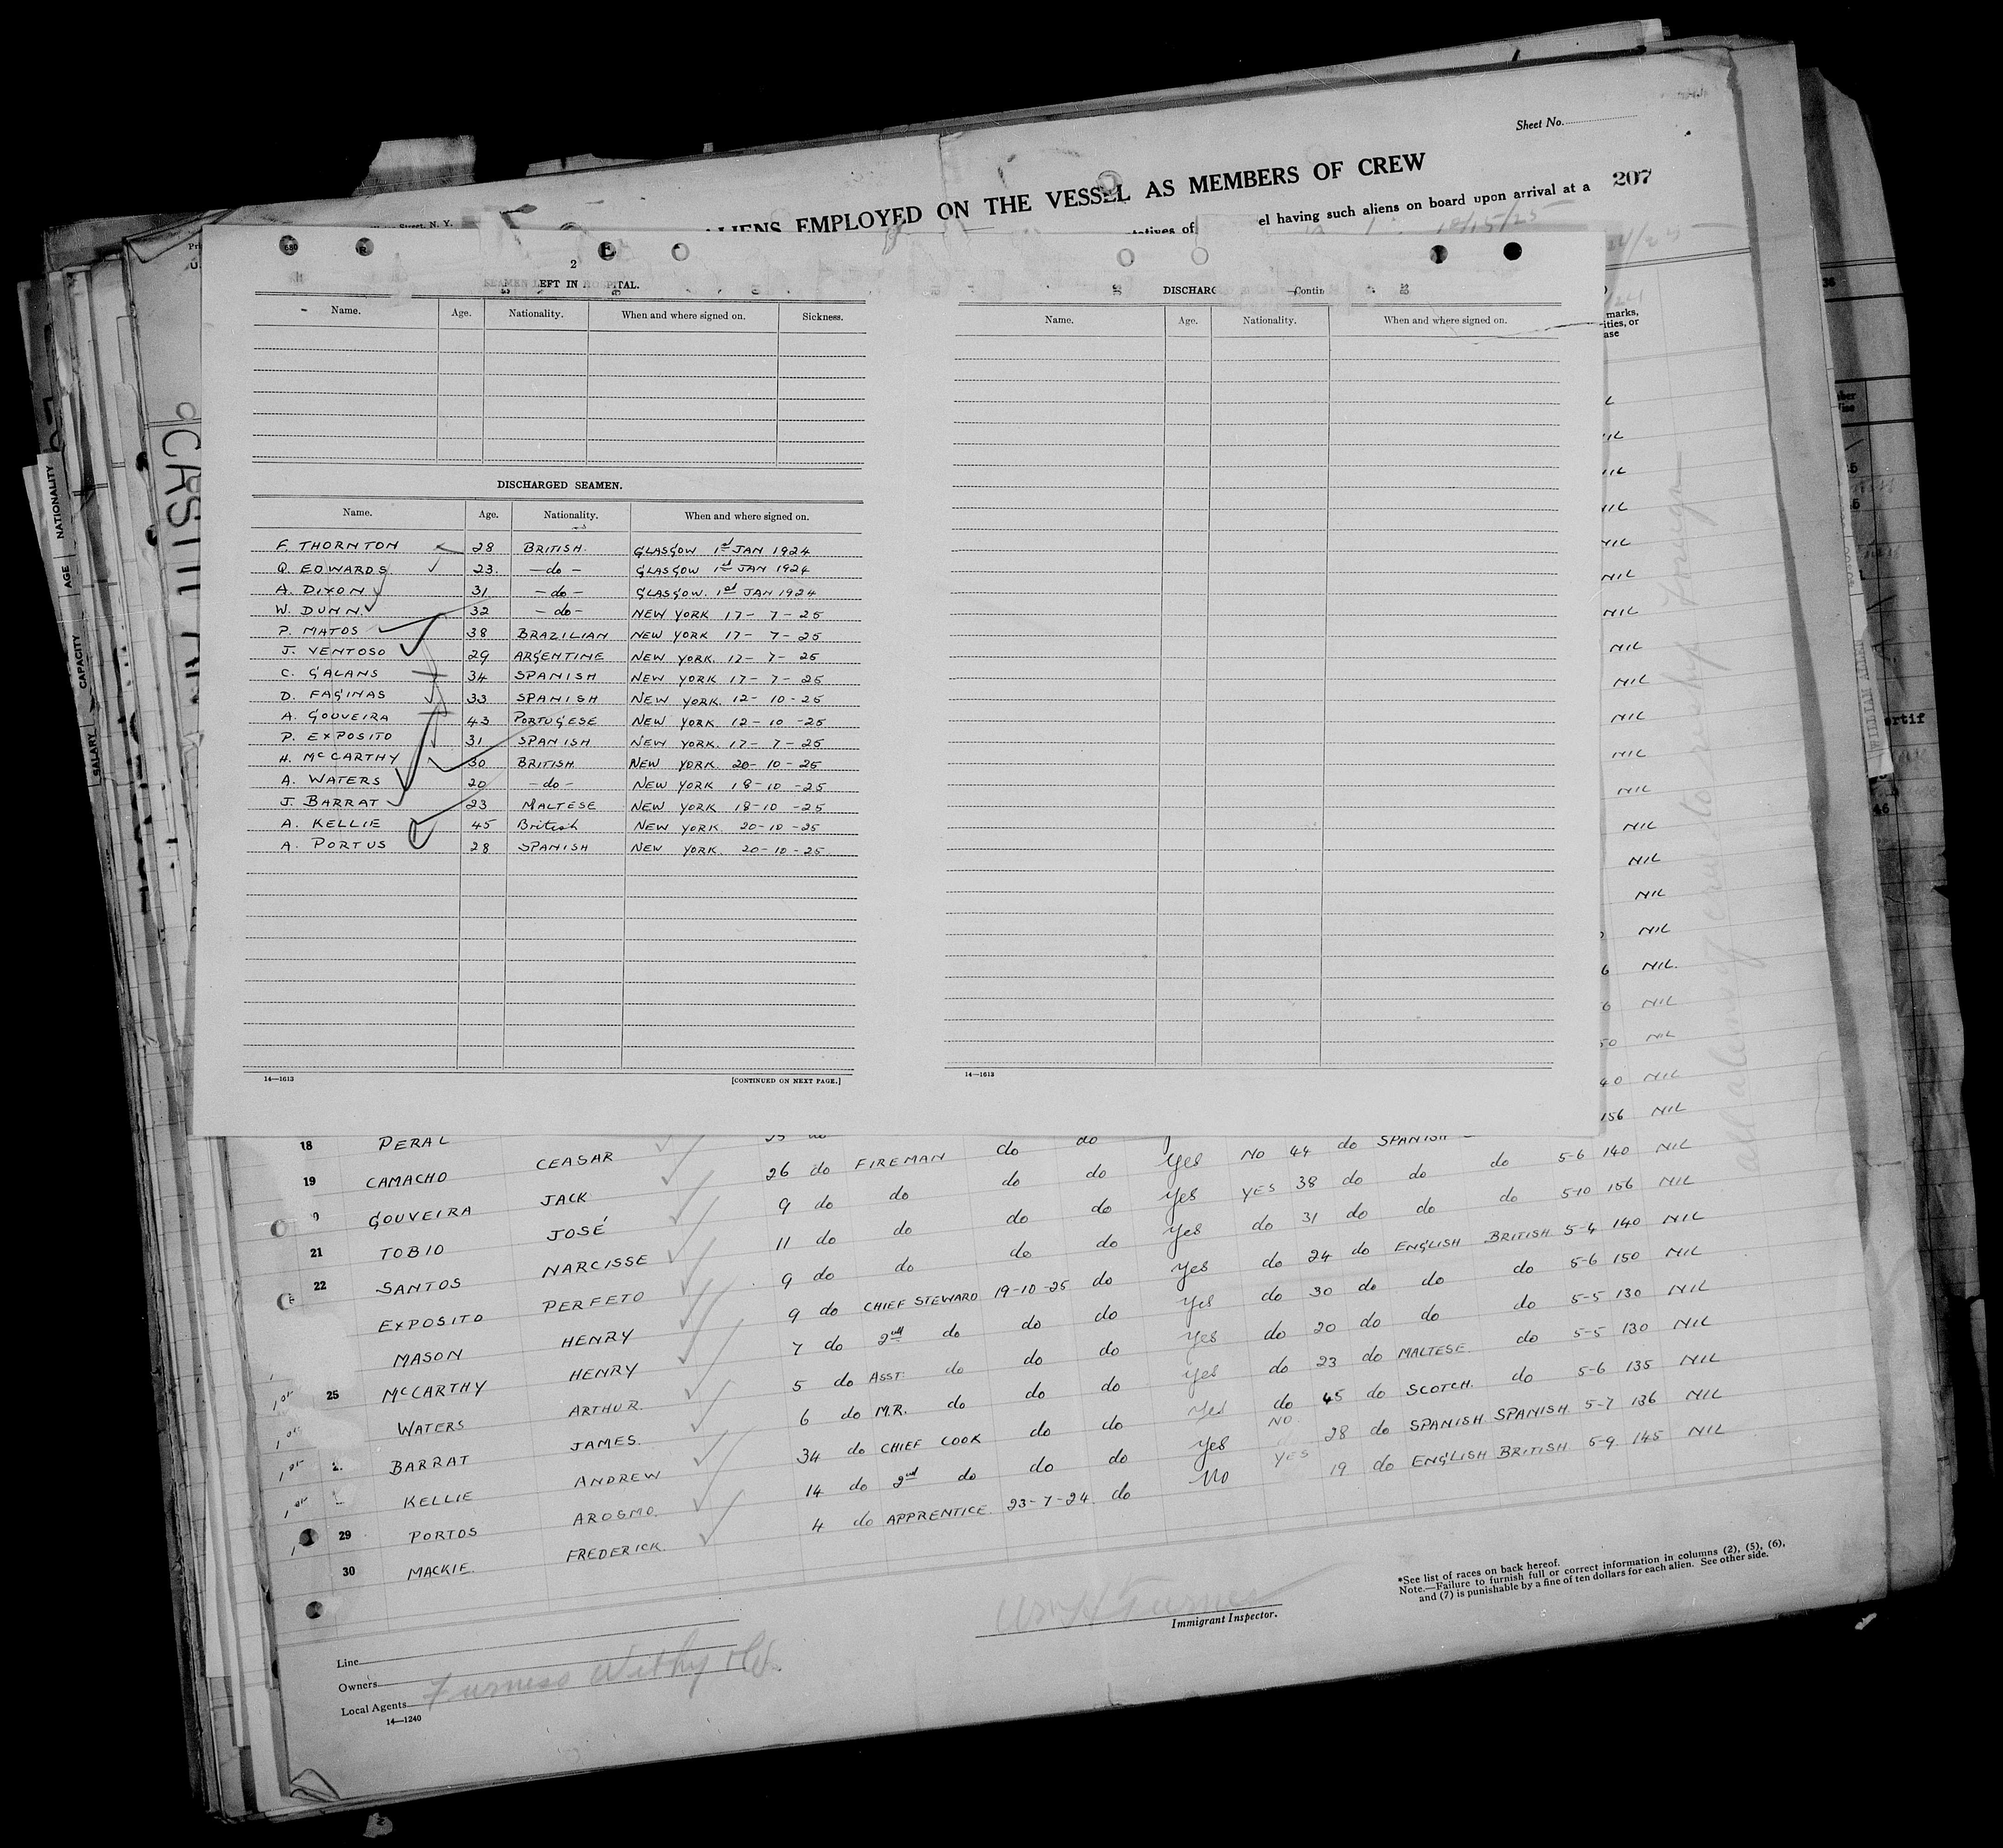 Sheet No.
ALIENS EMPLOYED ON THE VESSEL AS MEMBERS OF CREW
207
el having such aliens on board upon arrival at a
Street, N. Y.
2
SEAMEN LEFT IN HOSPITAL.
Name. Age. Nationality. When and where signed on. Sickness.
DISCHARGED SEAMEN.
Name. Age. Nationality. When and where signed on.
F. THORNTON 28 BRITISH. GLASGOW 1st JAN 1924
Q. EDWARDS. 23. -do- GLASGOW 1st JAN 1924
A. DIXON 31. -do- GLASGOW. 1st JAN 1924
W. DUNN. 32 -do- NEW YORK 17-7-25
P. MATOS 38 BRAZILIAN NEW YORK 17-7-25
J. VENTOSO 29 ARGENTINE NEW YORK. 17-7-25
C. GALANS 34 SPANISH NEW YORK 17-7-25
D. FAGINAS 33 SPANISH NEW YORK. 12-10-25
A. GOUVEIRA 43 PORTUGESE NEW YORK 12-10-25
P. EXPOSITO 31 SPANISH NEW YORK. 17-7-25
H. McCARTHY 30 BRITISH NEW YORK 20-10-25
A. WATERS 20 -do- NEW YORK 18-10-25
J. BARRAT 23 MALTESE NEW YORK 18-10-25
A. KELLIE 45 British NEW YORK 20-10-25
A. PORTUS 28 SPANISH NEW YORK. 20-10-25
14—1613 [CONTINUED ON NEXT PAGE.]
DISCHARG Contin
Name. Age. Nationality. When and where signed on.
14—1613
marks,
ities, or
ase
NIL
NIL
NIL
NIL
NIL
NIL
NIL
NIL
NIL
NIL
NIL
NIL
NIL
NIL
NIL.
NIL
50 NIL
40 NIL
156 NIL
all aliens of crew to reship foreign
NATIONALITY
AGE
CAPACITY
SALARY
18 PERAL CEASAR do do SPANISH
19 CAMACHO JACK 26 do FIREMAN do do yes NO 44 do do do 5-6 140 NIL
GOUVEIRA JOSÉ 9 do do do do yes YES 38 do do do 5-10 156 NIL
21 TOBIO NARCISSE 11 do do do do yes do 31 do do do 5-4 140 NIL
22 SANTOS PERFETO 9 do do do do yes do 24 do ENGLISH BRITISH 5-6 150 NIL
EXPOSITO HENRY 9 do CHIEF STEWARD 19-10-25 do yes do 30 do do do 5-5 130 NIL
MASON HENRY 7 do 2nd do do do yes do 20 do do do 5-5 130 NIL
25 McCARTHY ARTHUR. 5 do ASST. do do do yes do 23 do MALTESE do 5-6 135 NIL
WATERS JAMES. 6 do M.R. do do do yes do 45 do SCOTCH. do 5-7 136 NIL
BARRAT ANDREW 34 do CHIEF COOK do do yes NO 28 do SPANISH. SPANISH. 5-9. 145 NIL
KELLIE AROSMO. 14 do 2nd do do do No YES 19 do ENGLISH BRITISH
29 PORTOS FREDERICK. 4 do APPRENTICE. 23-7-24. do
30 MACKIE.
*See list of races on back hereof.
Note.—Failure to furnish full or correct information in columns (2), (5), (6),
and (7) is punishable by a fine of ten dollars for each alien. See other side.
Immigrant Inspector.
Line
Owners
Local Agents Furness Withy & Co.
14—1240